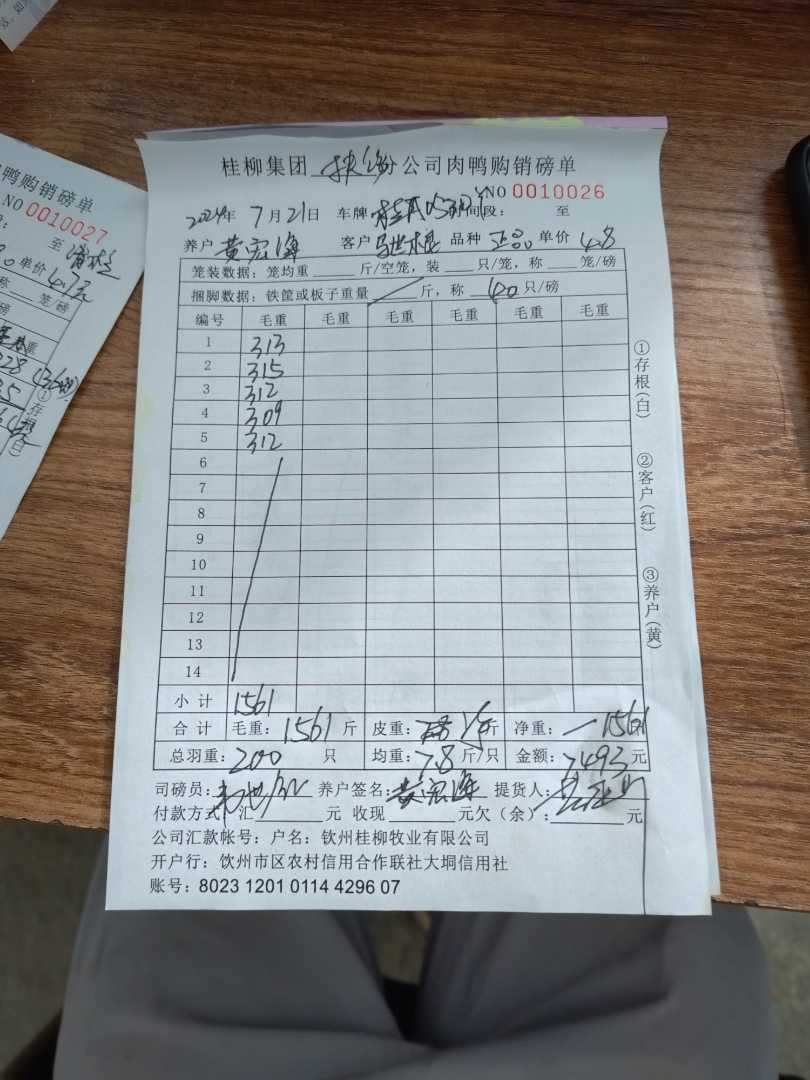 桂柳集团 公司肉鸭购销磅单
NO 0010026
2024年 7月21日 车牌 时间段： 至
养户 黄宏海 客户 马世 品种 正品 单价 4.8
笼装数据：笼均重 斤/空笼，装 只/笼，称 笼/磅
捆脚数据：铁筐或板子重量 斤，称 40 只/磅
编号 毛重 毛重 毛重 毛重 毛重 毛重
1 313
2 315
3 312
4 309
5 312
6
7
8
9
10
11
12
13
14
小计 1561
合计 毛重：1561 斤 皮重： 斤 净重：1561
总羽重：200 只 均重：7.8 斤/只 金额：7493 元
司磅员： 养户签名：黄宏海 提货人：
付款方式 汇 元 收现 元欠（余）： 元
公司汇款帐号：户名：钦州桂柳牧业有限公司
开户行：饮州市区农村信用合作联社大垌信用社
账号：8023 1201 0114 4296 07
①存根(白)
②客户(红)
③养户(黄)
鸭购销磅单
NO 0010027
至
单价 4.1元
笼/磅
只/磅
毛重
①存根(白)